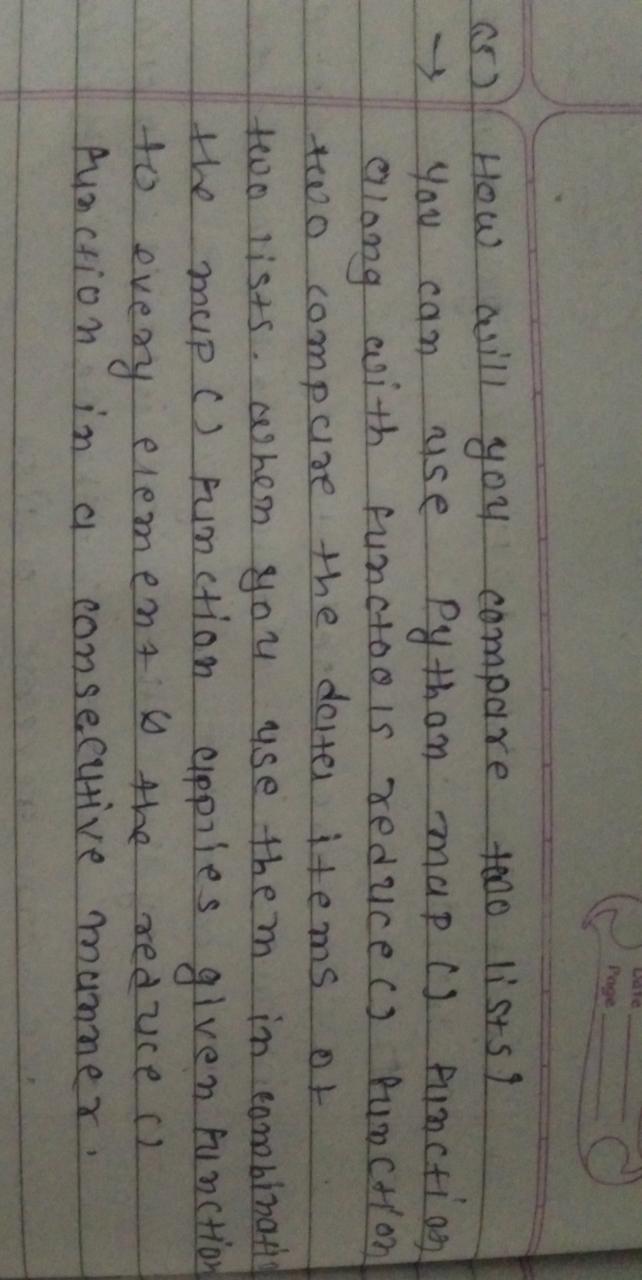 Date
Page
(5) How will you compare two lists?
→ You can use Python map () function
along with functools reduce () function
two compare the data items of
two lists. when you use them in combinati
the map () function applies given function
to every element & the reduce ()
function in a consecutive manner.